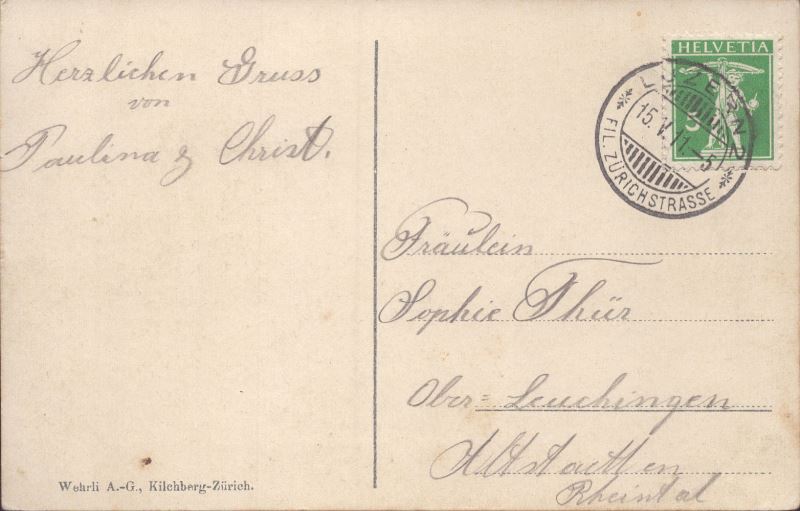 Herzlichen Gruss
von
Paulina & Christ.
Wehrli A.-G., Kilchberg-Zürich.
HELVETIA
5
LUZERN 2
15.V.11.-5
FIL. ZÜRICHSTRASSE
Fräulein
Sophie Thür
Ober=Leuchingen
Altstätten
Rheintal